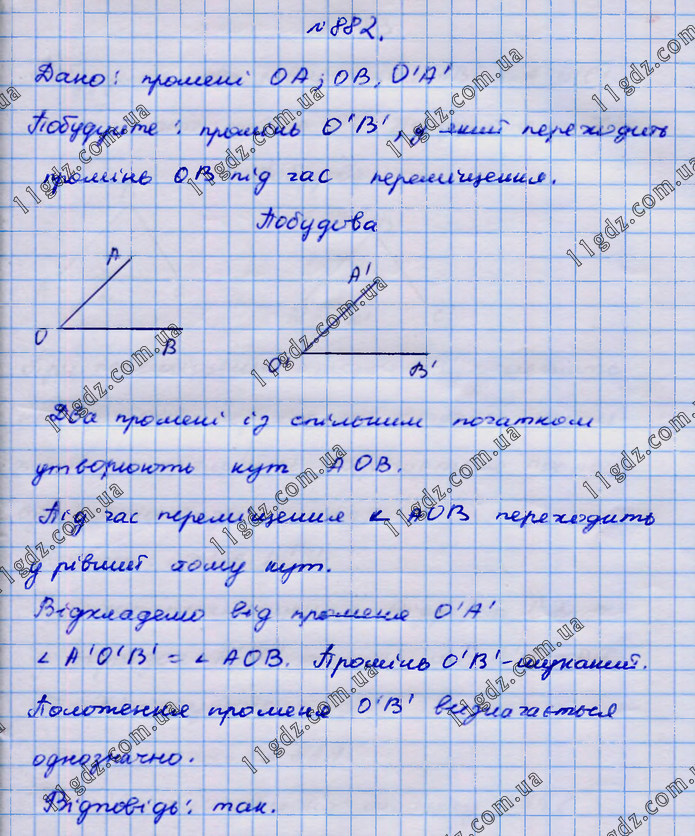 №882.
Дано: промені OA; OB, O'A'
Побудуйте: промінь O'B', у який переходить
промінь OB під час переміщення.
Побудова
A
O
B
A'
O'
B'
Два промені із спільним початком
утворюють кут AOB.
Під час переміщення ∠ AOB переходить
у рівний йому кут.
Відкладемо від променя O'A'
∠ A'O'B' = ∠ AOB. Промінь O'B' - шуканий.
Положення променя O'B' визначається
однозначно.
Відповідь: так.
11gdz.com.ua